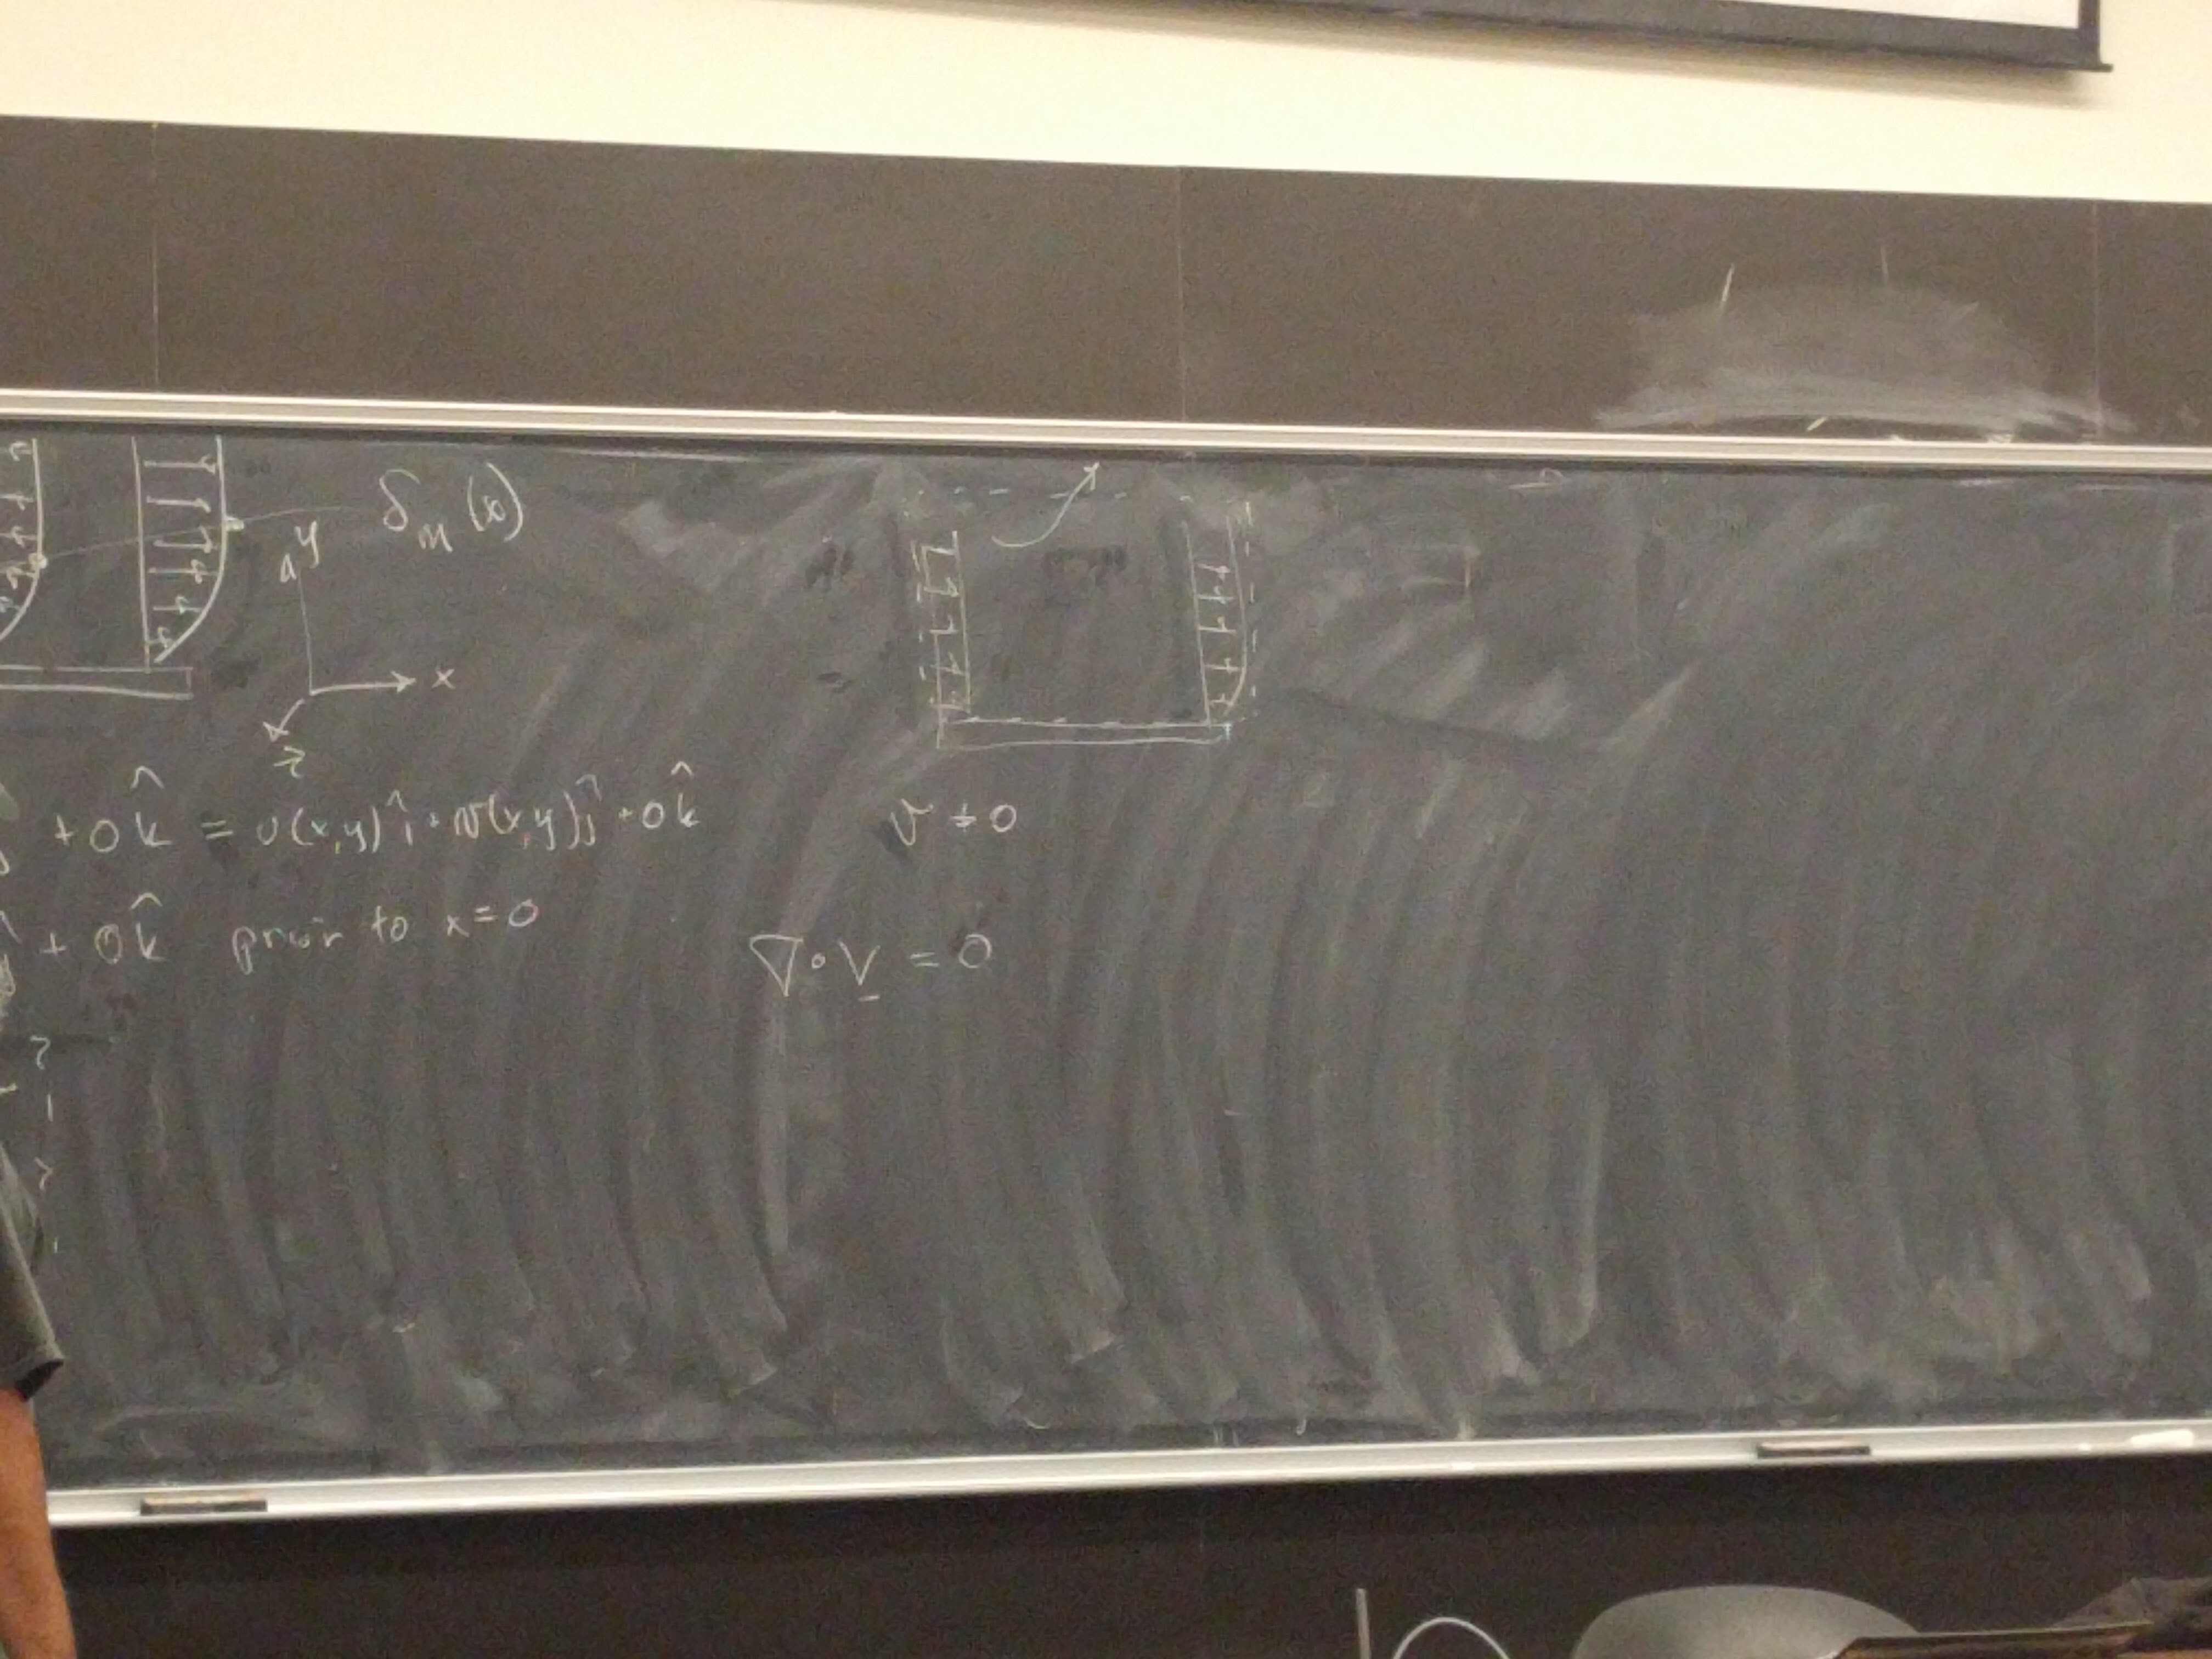 δ_m (x)
y
x
z
+ 0 k̂ = u(x,y) î + v(x,y) ĵ + 0 k̂
v ≠ 0
+ 0 k̂ prior to x = 0
∇ · V̲ = 0
?